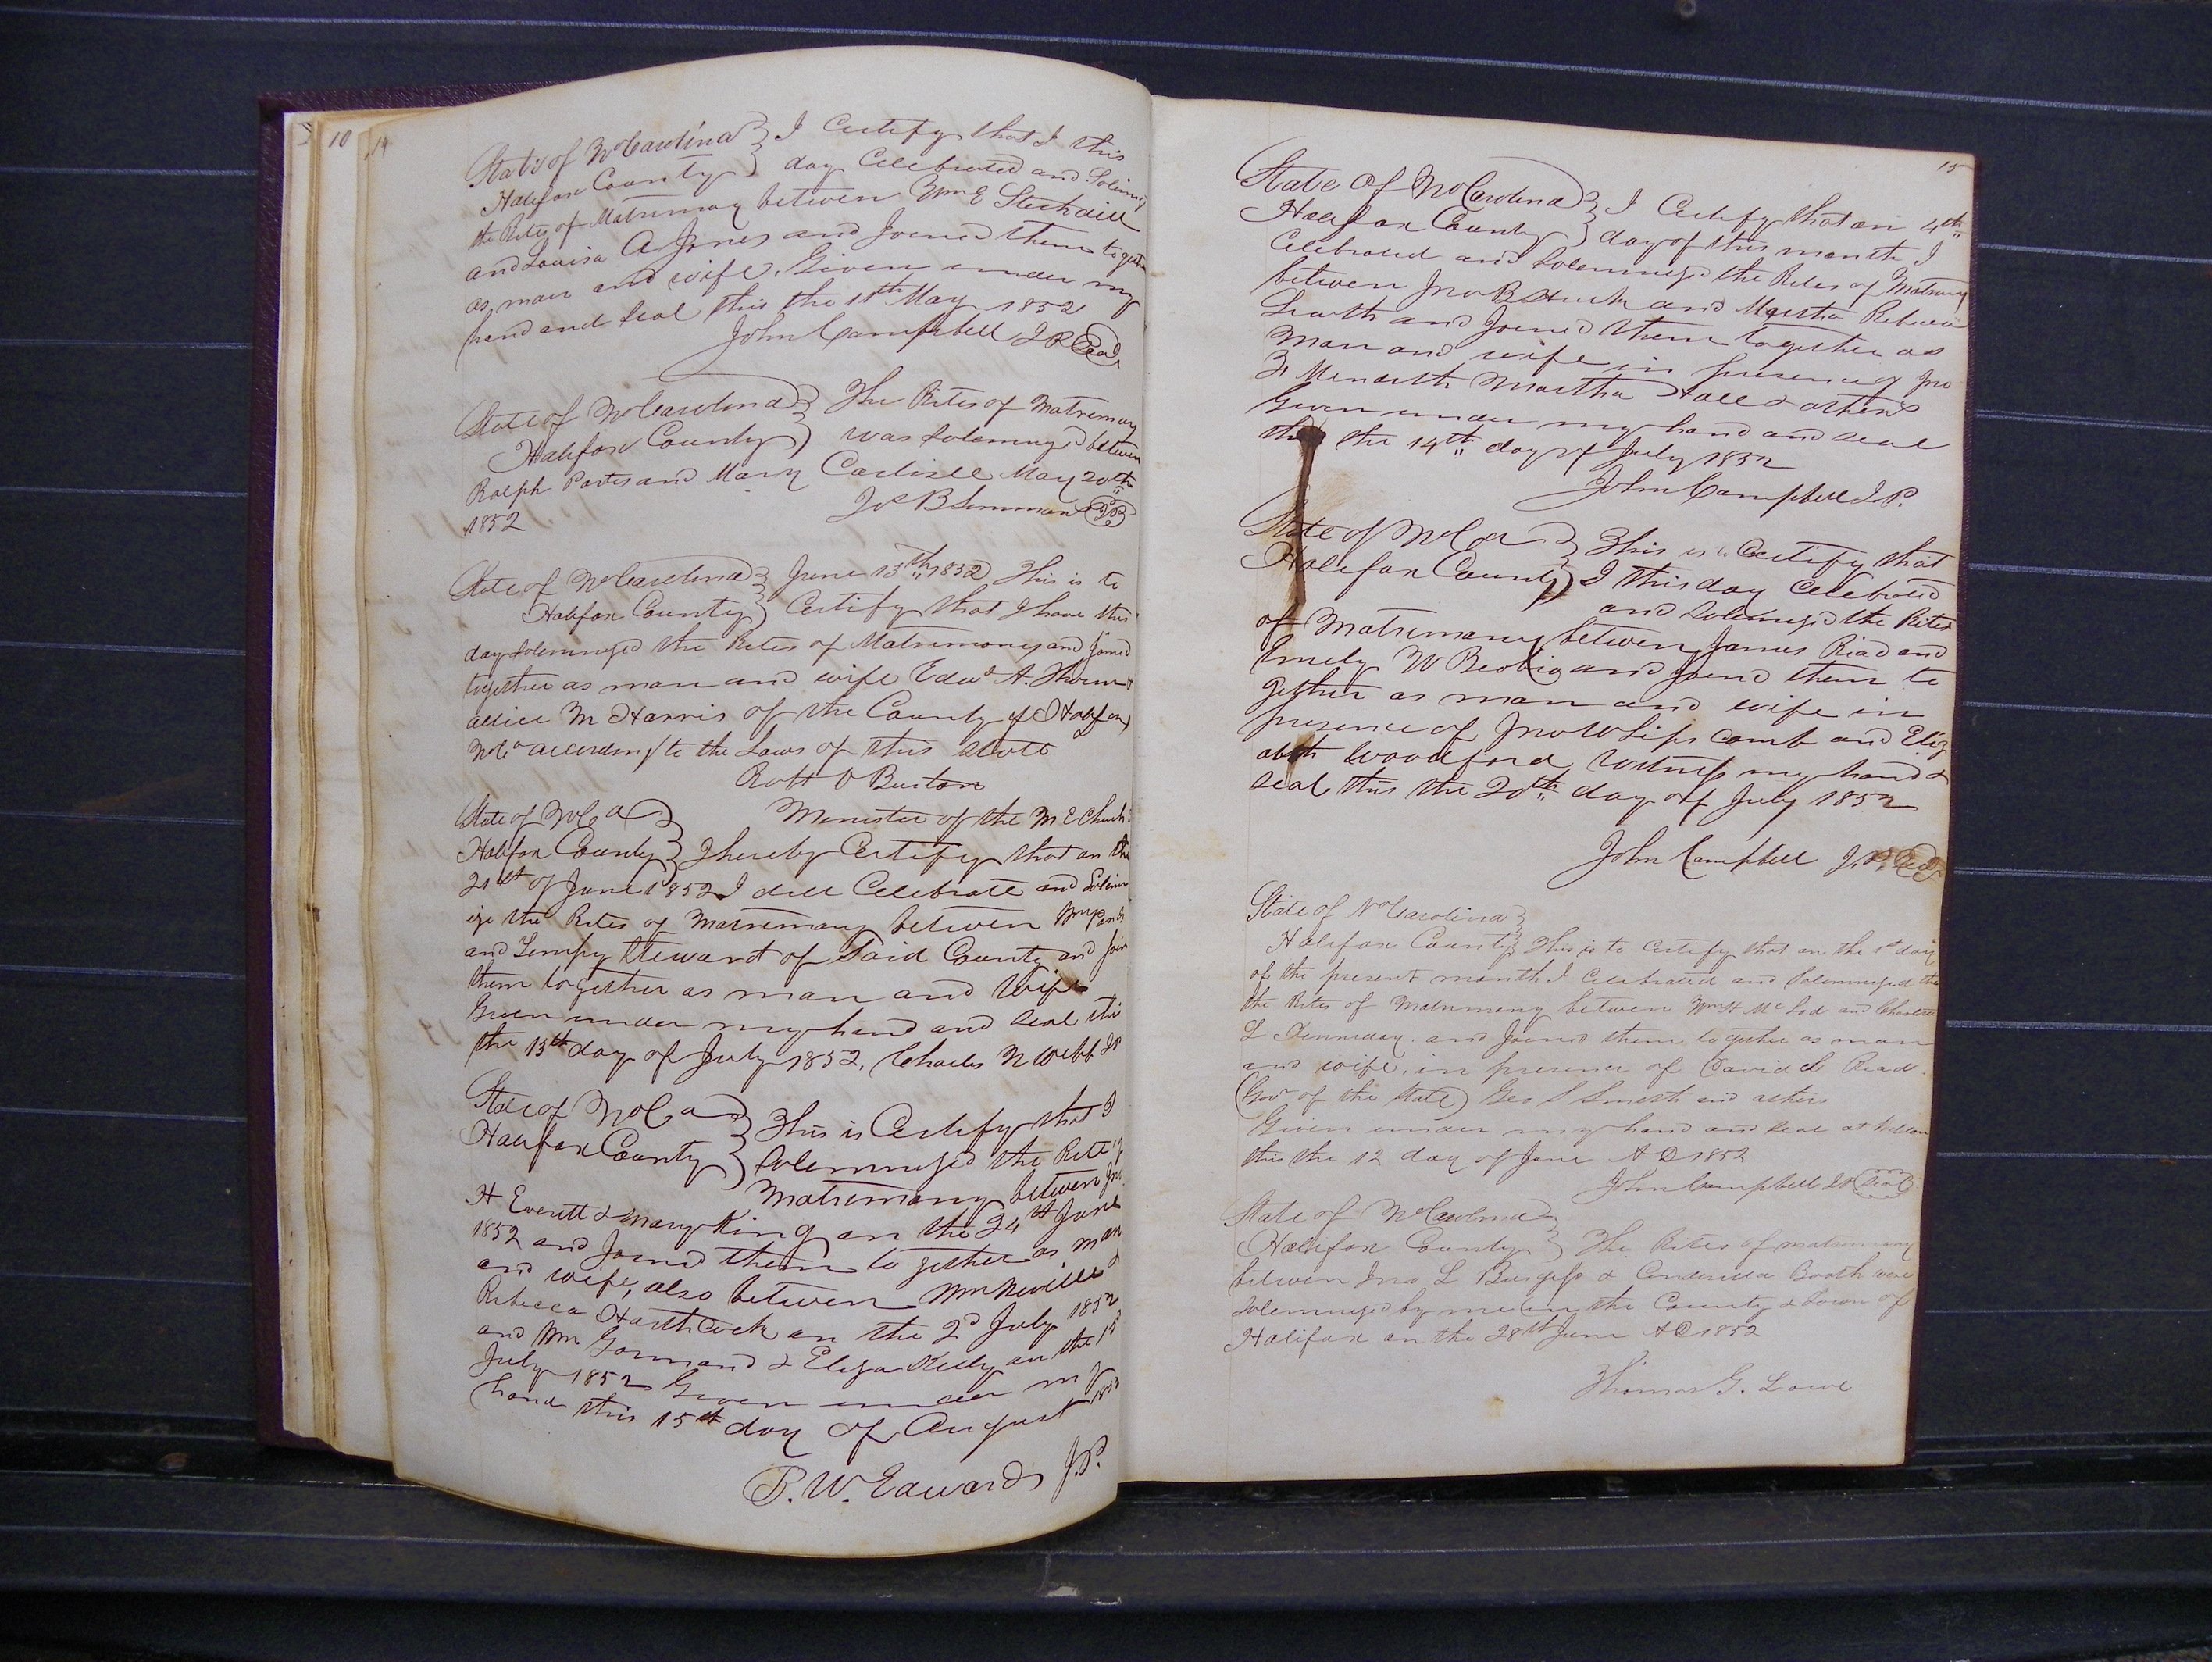 10
14
State of No Carolina } I Certify that I this
Halifax County } day Celebrated and Solemnize
the Rites of Matrimony between Wm E
and Louisa A Jones and Joined them togeth
as man and wife. Given under my
hand and seal this the 11th May 1852
John Campbell J P Seal
State of No Carolina } The Rites of Matrimony
Halifax County } was Solemnized between
Ralph Porter and Mary Carlisle May 20th
1852
State of No Carolina } June 13th 1852 This is to
Halifax County } Certify that I have this
day Solemnized the Rites of Matrimony and Joined
together as man and wife Edwd A. Thorne &
Allice M Harris of the County of Halifax
No Ca according to the Laws of this State
Robt O Burton
Minister of the M E Church
State of No Ca }
Halifax County } I hereby Certify that on the
21st of June 1852 I did Celebrate and Solemn
ize the Rites of Matrimony between Wm
and Tempy Steward of Said County and Join
them together as man and Wife
Given under my hand and Seal this
the 13th day of July 1852. Charles N Webb JP
State of No Ca } This is Certify that I
Halifax County } Solemnized the Rite of
Matrimony between Jno
H Everett & Mary King on the 24th June
1852 and Joined them together as man
and wife, also between Wm Neville &
Rebecca Harthcock on the 2d July 1852
and Wm Gormand & Eliza Kelly on the 15
July 1852 Given under my
hand this 15th day of August 1852
P. W. Edwards J.P.
15
State of No Carolina } I Certify that on 4th
Halifax County } day of this month I
Celebrated and Solemnized the Rites of Matrimony
between Jno B and Martha Rebecca
and Joined them together as
man and wife in presence of Jno
Martha Hall & others
Given under my hand and seal
this the 14th day of July 1852
John Campbell J.P.
State of No Ca } This is to Certify that
Halifax County } I this day Celebrated
and Solemnized the Rites
of Matrimony between James Read and
Emely W and joined them to
gether as man and wife in
presence of Jno W Lipscomb and Eliz
abeth Woodford Witness my hand &
seal this the 20th day of July 1852
John Campbell J.P. Seal
State of No Carolina }
Halifax County } This is to Certify that on the 1st day
of the present month I Celebrated and Solemnized the
the Rites of Matrimony between Wm H Mc and
L Kenneday and Joined them together as man
and wife, in presence of David S Read
(Govr of the State) Geo S Smith and others
Given under my hand and seal at Weldon
this the 12 day of June A D 1852
John Campbell JP Seal
State of No Carolina }
Halifax County } The Rites of matrimony
between Jno L Burgess & Booth were
Solemnized by me in the County & Town of
Halifax on the 28th June A D 1852
Thomas G. Lowe